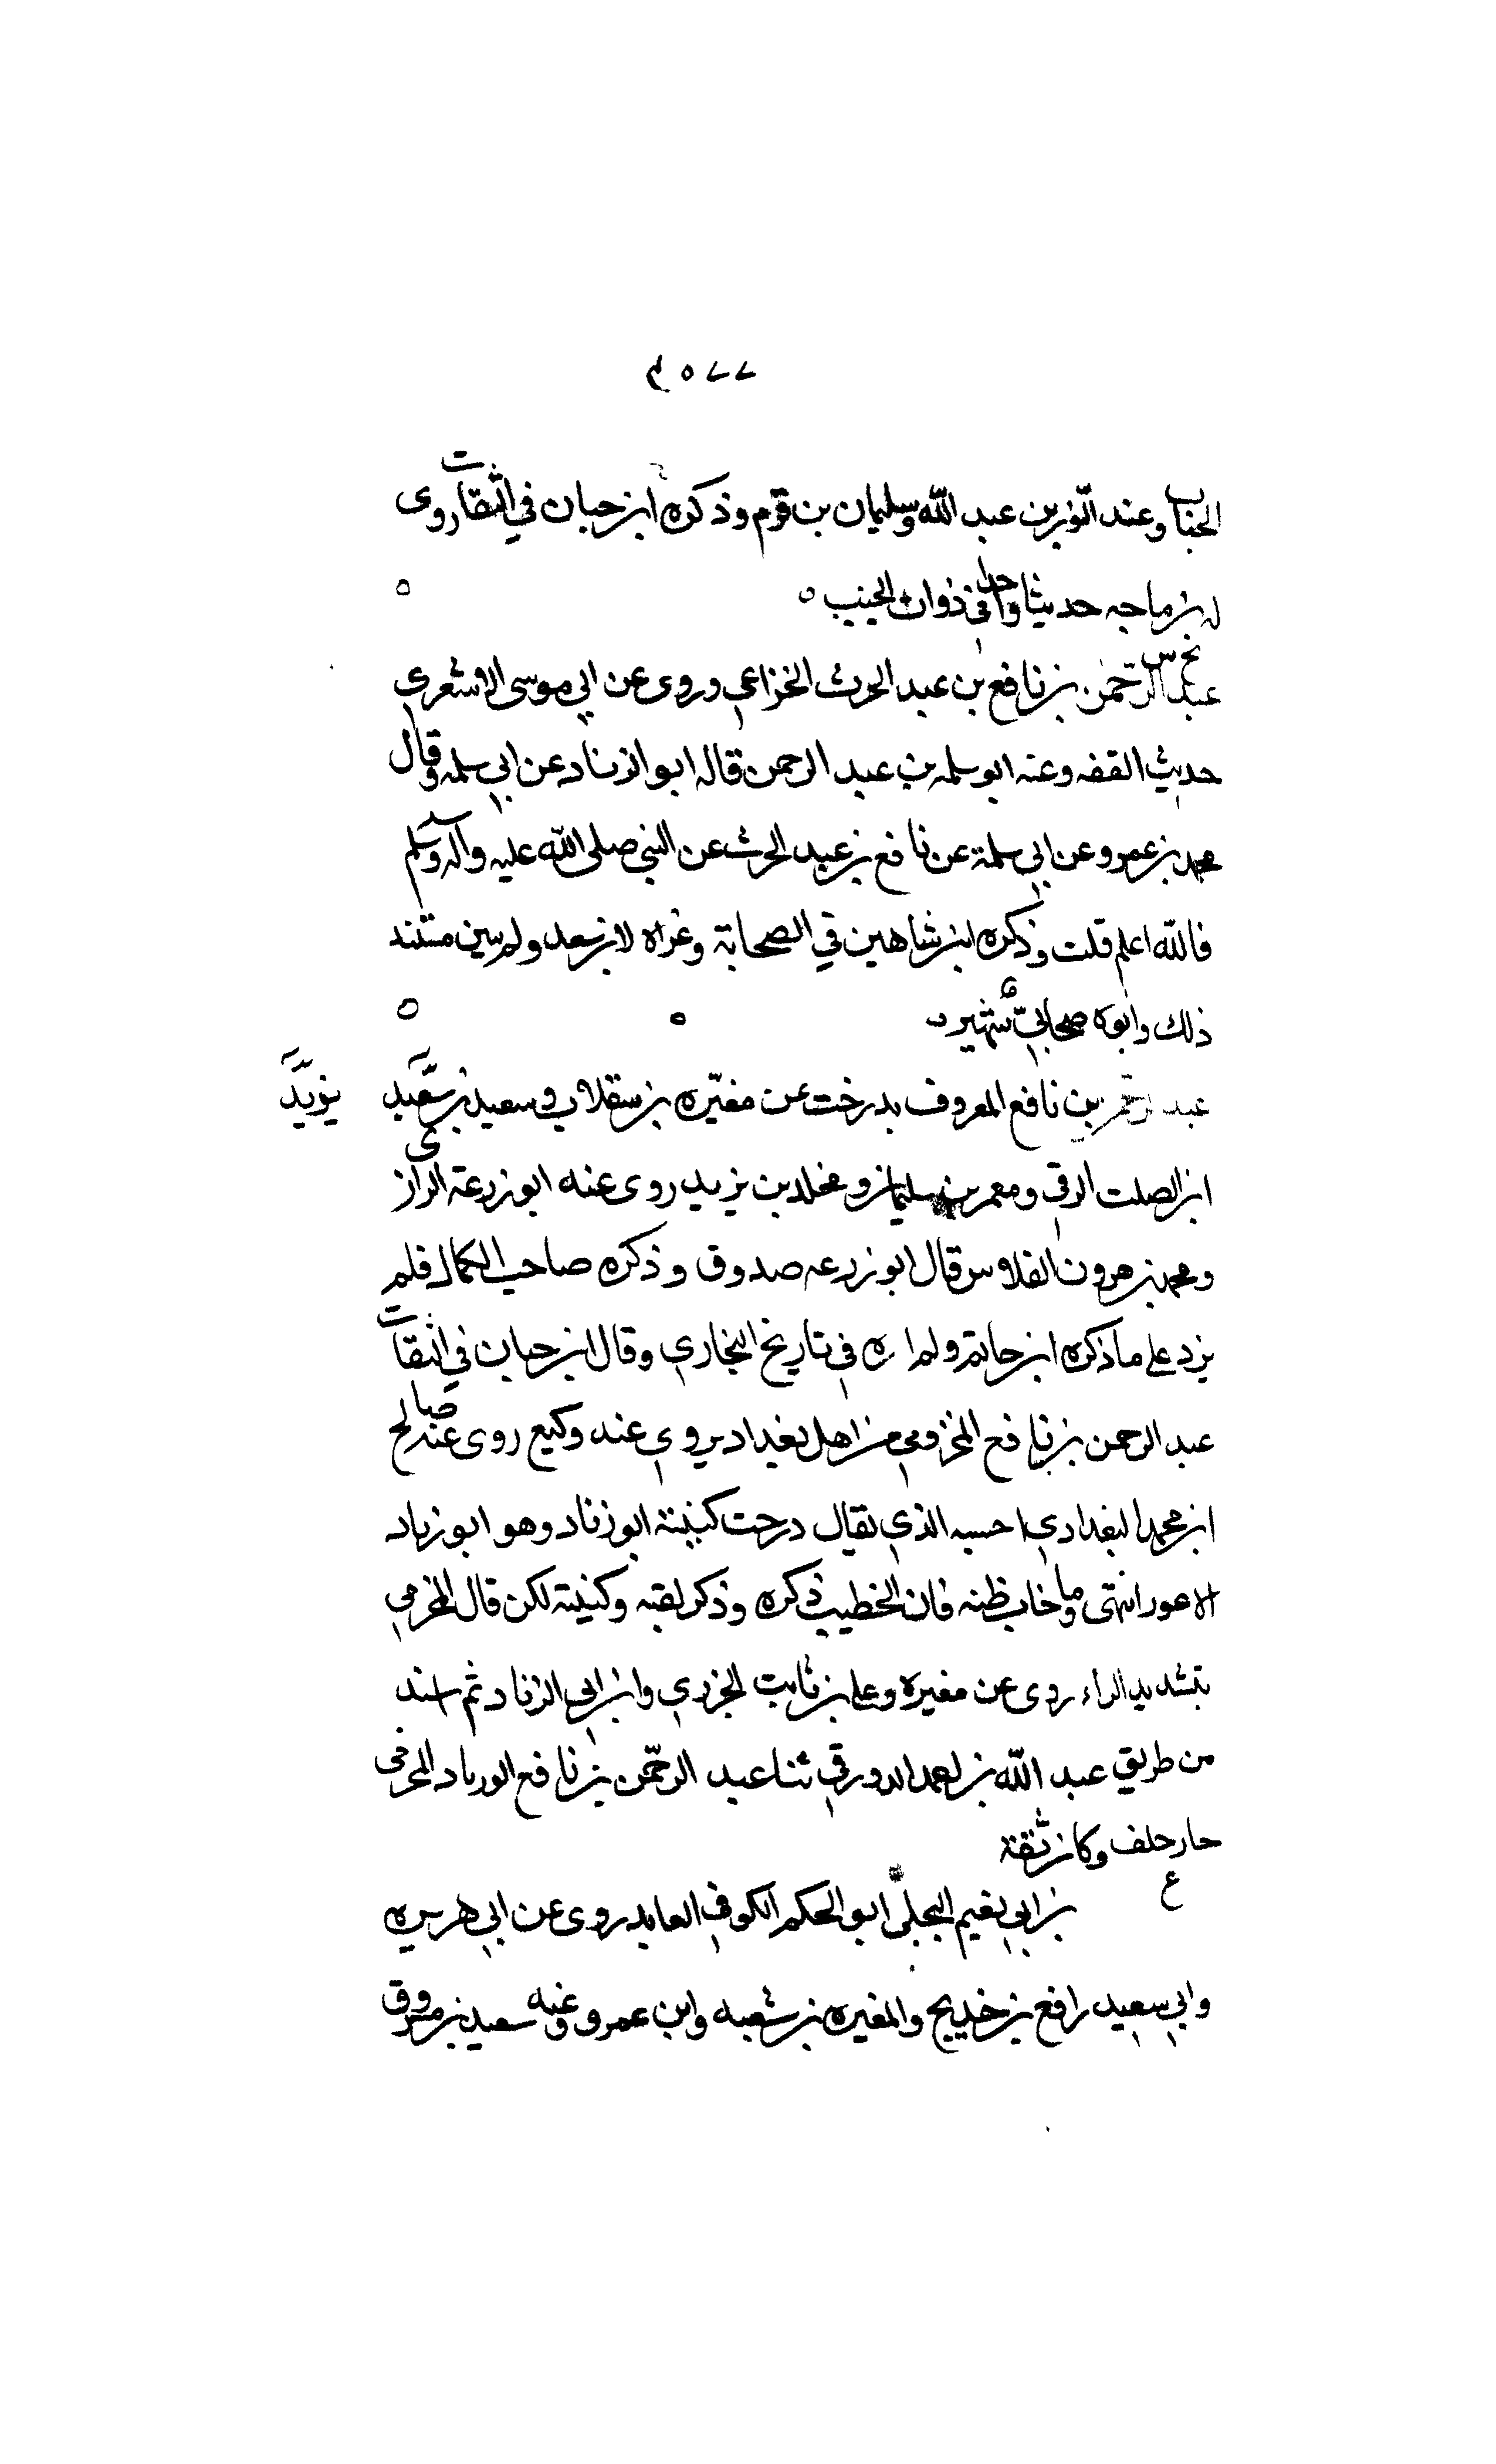 ٧٧٥م
الحباب وعنه الزبير بن عبد الله وسليمان بن قرم وذكره ابن حبان في الثقات روى
له بن ماجه حديثا واحدا في ذوات الجنب ه ه
بخ س عبد الرحمن بن نافع بن عبد الحرث الخزاعي وروى عن ابي موسى الاشعري
حديث القفه وعنه ابو سلمه بن عبد الرحمن قاله ابو الزناد عن ابي سلمه وقال
محمد بن عمرو عن ابي سلمة عن نافع بن عبد الحرث عن النبي صلى الله عليه وآله وسلم
فالله اعلم قلت وذكره ابن شاهين في الصحابة وعزاه لابن سعد ولم يبين مستند
ذلك وابوه صحابيّ شهير
عبد الرحمن بن نافع المعروف بدرخت عن مغيّره بن سقلاب وسعيد بن سعيد يزيد
ابن الصلت الرقي ومعمر بن سليمان ومخلد بن يزيد روى عنه ابو زرعة الرازى
ومحمد بن هرون الفلاس قال ابو زرعه صدوق وذكره صاحب الكمال فلم
يزد على ما ذكره ابن حاتم ولم اره في تاريخ البخاري وقال ابن حبان في الثقات
عبد الرحمن بن نافع المخزومي من اهل بغداد يروي عنه وكيع روى عنه صالح
ابن محمد البغدادي احسبه الذي يقال درخت كنيته ابو زناد وهو ابو زياد
الاعور انتهى وما خاب ظنه فان الخطيب ذكره وذكر لقبه وكنيته لكن قال المخرمي
بتشديد الراء روى عن مغيره وعلي بن ثابت الجزري وابن ابي الزناد ثم اسند
من طريق عبد الله بن احمد الدورقي ثنا عبد الرحمن بن نافع ابو زياد المخرمي
جار خلف وكان ثقة
ع بن ابي نعيم البجلي ابو الحكم الكوفي العابد روى عن ابي هريره
وابي سعيد رافع بن خديج والمغيره بن شعبه وابن عمرو وعنه سعيد بن مسروق